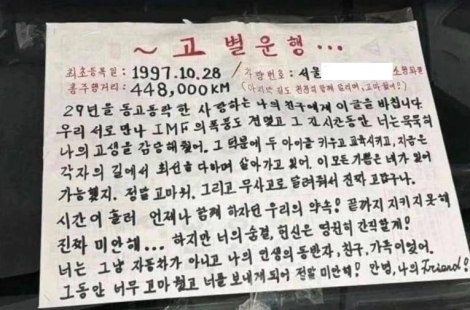 ~ 고별운행 ...
최초등록일 : 1997.10.28 / 차량번호 : 서울 소명화원
총주행거리 : 448,000KM (마지막 길도 함께 달리며, 고마웠어!)
29년을 동고동락한 사랑하는 나의 친구에게 이글을 바칩니다.
우리 서로만나 IMF의 폭풍도 견뎠고 그 긴시간동안 너는묵묵히
나의 고생을 감당해줬어. 그덕분에 두 아이를 키우고 교육시키고, 지금은
각자의 길에서 최선을 다하며 살아가고 있어. 이 모든 기쁨은 네가 있어
가능했지. 정말 고마워. 그리고 무사고로 달려줘서 진짜 고맙구나.
시간이 흘러 언제나 함께 하자던 우리의 약속! 끝까지 지키지 못해
진짜 미안해... 하지만 너의 숨결, 헌신은 영원히 간직할게!
너는 그냥 자동차가 아니고 나의 인생의 동반자, 친구, 가족이었어.
그동안 너무 고마웠고 너를 보내게되어 정말 미안해! 안녕, 나의 Friend!